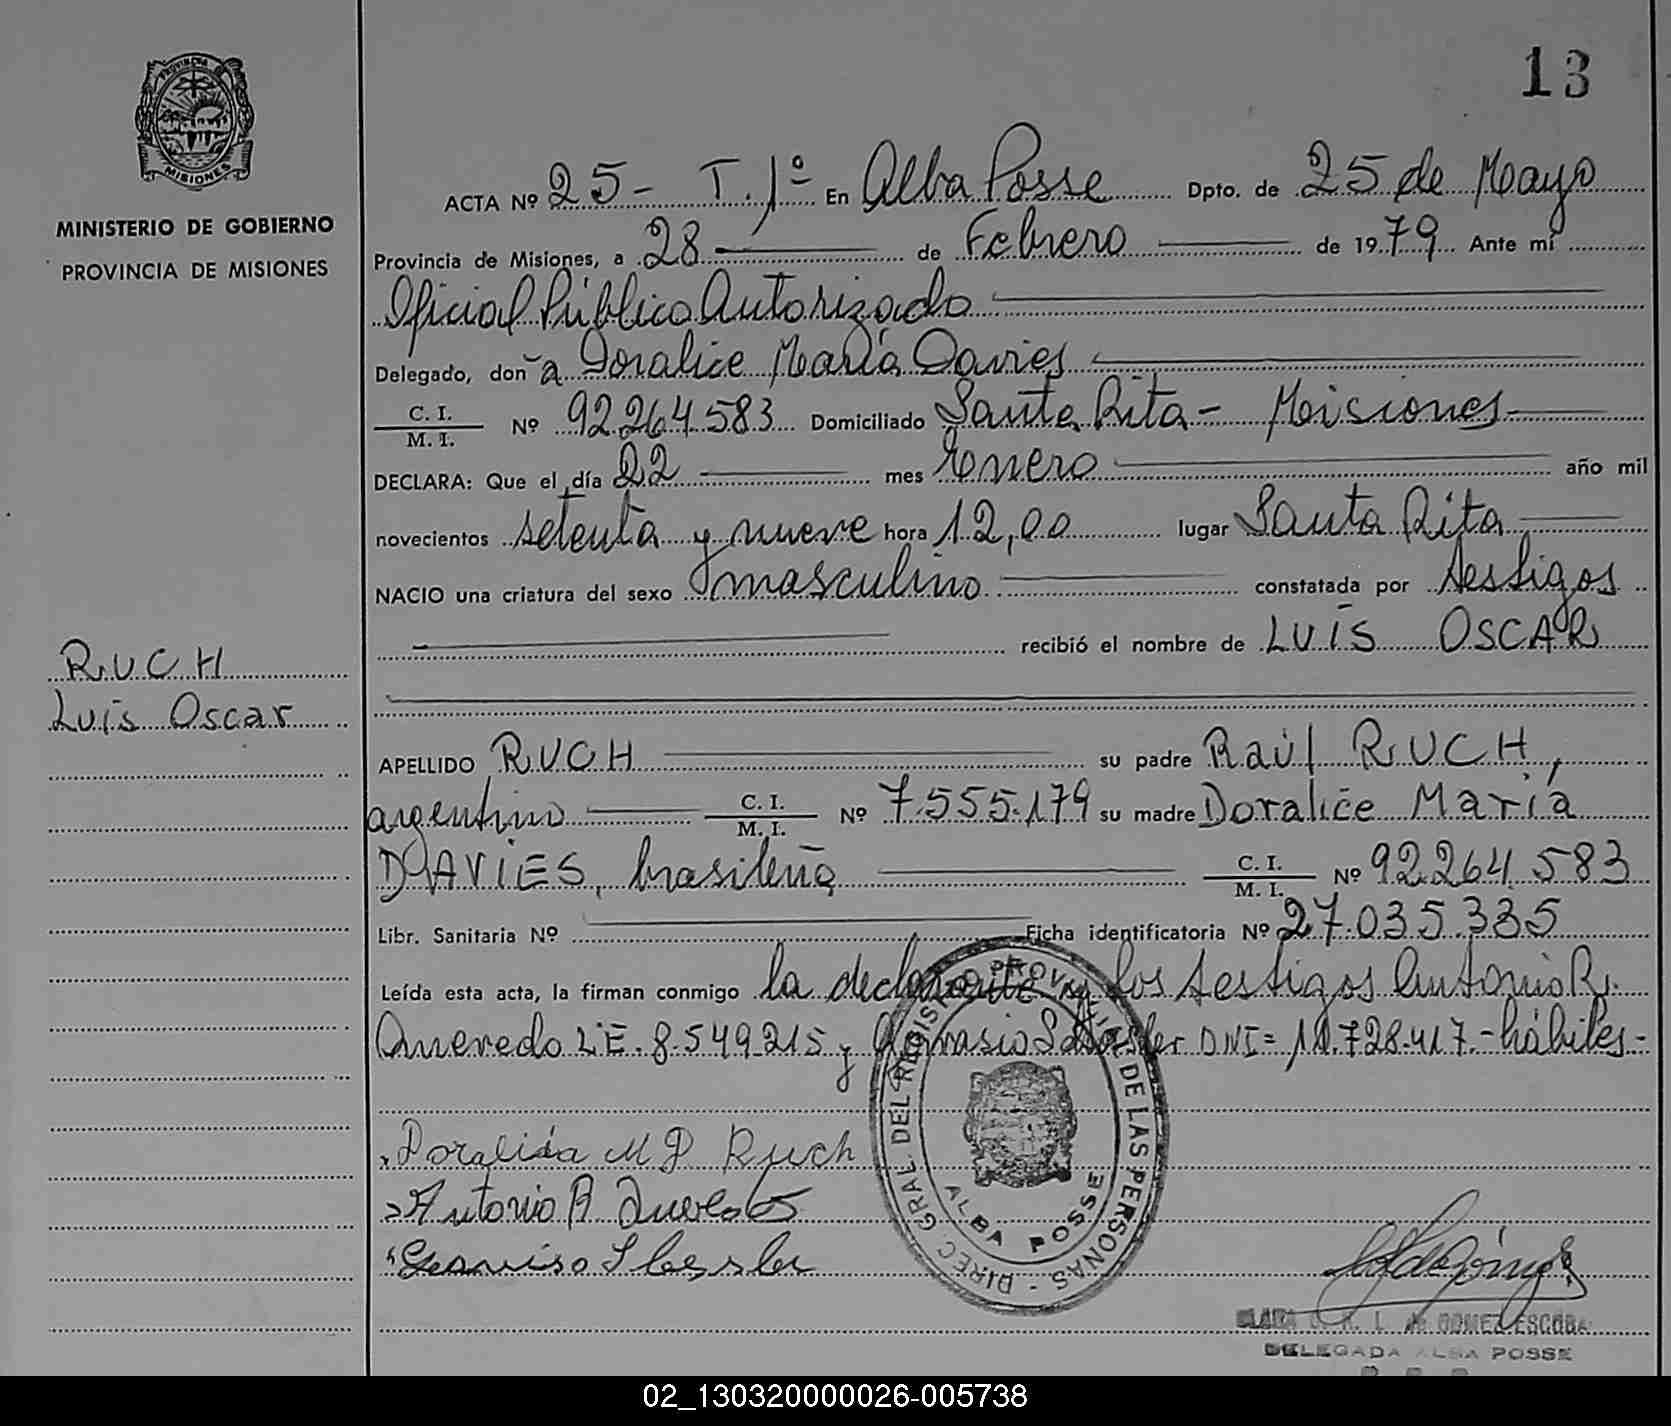 13
PROVINCIA DE
MISIONES
MINISTERIO DE GOBIERNO
PROVINCIA DE MISIONES
ACTA Nº 25- T.1º En Alba Posse Dpto. de 25 de Mayo
Provincia de Misiones, a 28 de Febrero de 1979 Ante mí
Oficial Público Autorizado
Delegado, don ~a Doralice María Davies
C. I.
M. I. Nº 92.264.583 Domiciliado Santa Rita - Misiones
DECLARA: Que el día 22 mes Enero año mil
novecientos setenta y nueve hora 12,00 lugar Santa Rita
NACIO una criatura del sexo masculino constatada por testigos
recibió el nombre de LUÍS OSCAR
RUCH
Luís Oscar
APELLIDO RUCH su padre Raúl RUCH,
argentino C. I.
M. I. Nº 7.555.179 su madre Doralice María
DAVIES, brasileña C. I.
M. I. Nº 92.264.583
Libr. Sanitaria Nº Ficha identificatoria Nº 27.035.335
Leída esta acta, la firman conmigo la declarante y los testigos Antonio R.
Quevedo L.E. 8.549.215 y DNI= .728.417.- hábiles-
Doralida M D Ruch
Antonio R Quevedo
DIREC. GRAL. DEL REGISTRO PROVINCIAL DE LAS PERSONAS -
ALBA POSSE
GOMEZ ESCOBAR
DELEGADA ALBA POSSE
02_130320000026-005738